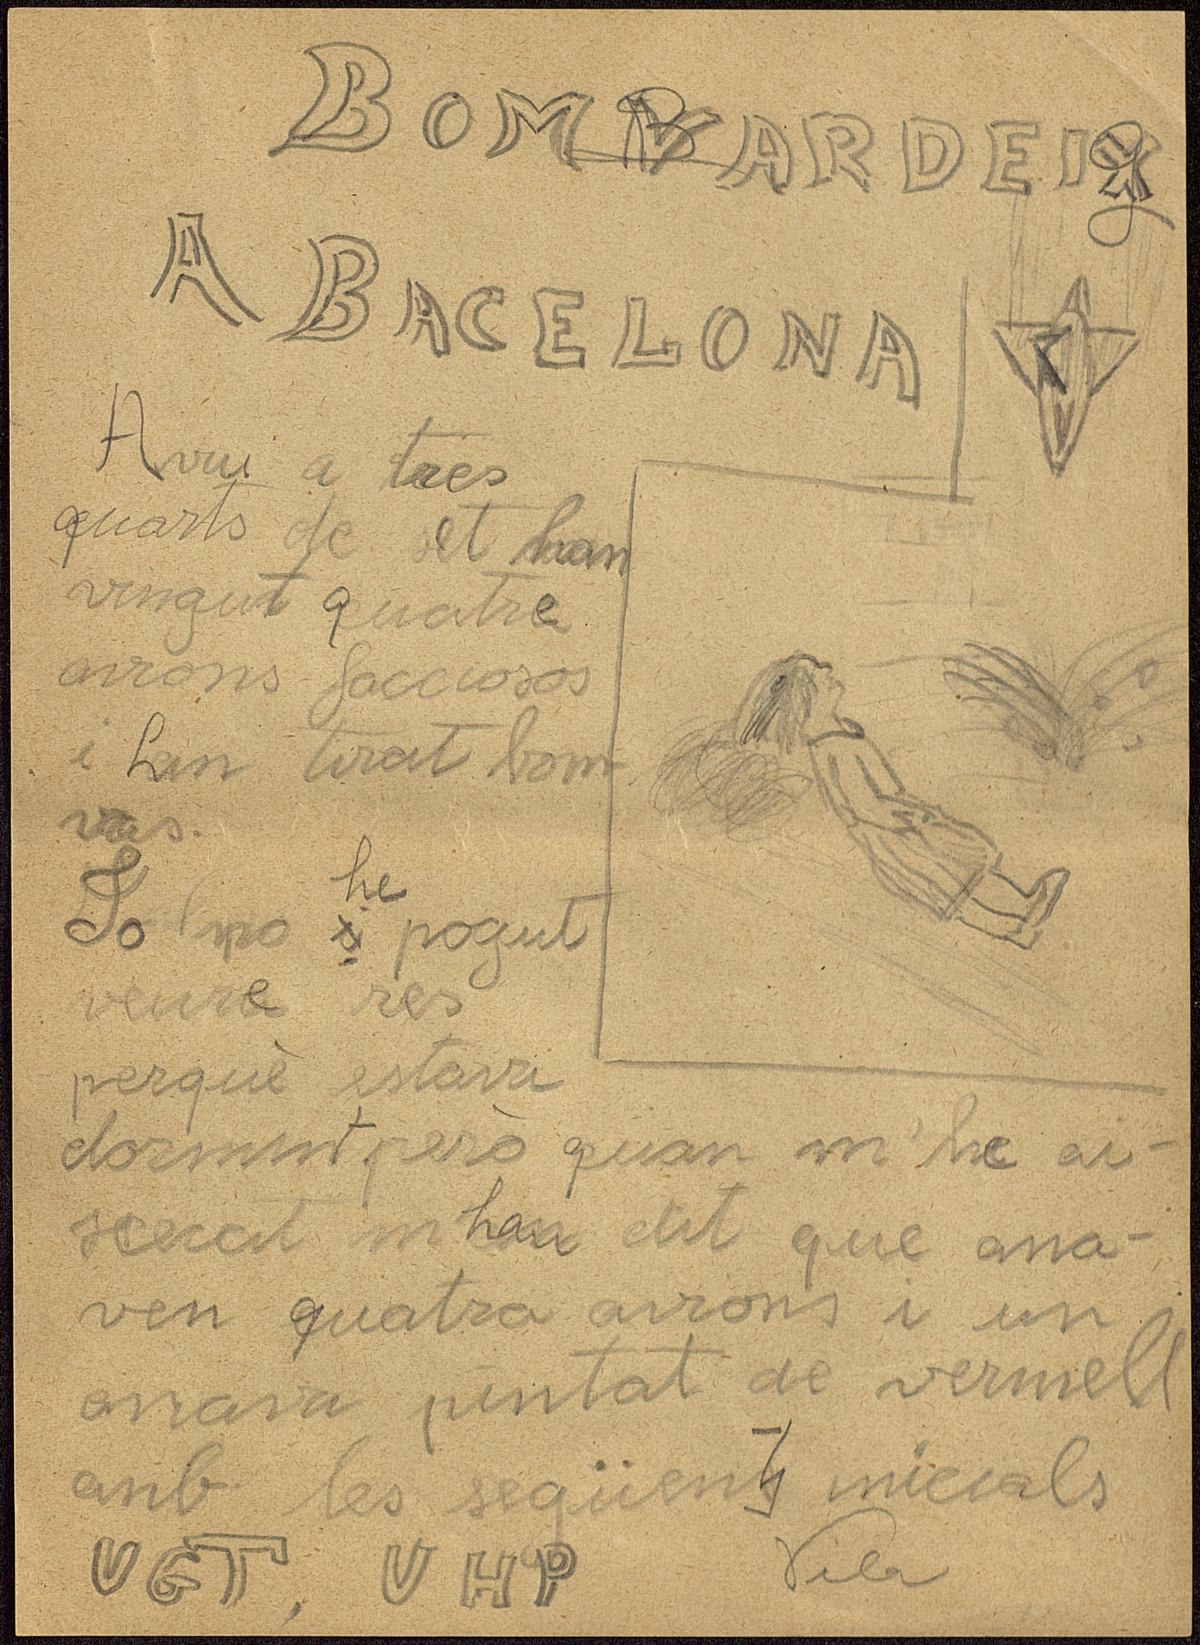 BOMBARDEIG
A BACELONA
Avui a tres
quarts de set han
vingut quatre
avions facciosos
i han tirat bom
vas.
Jo no he pogut
veure res
perquè estava
dormint però quan m'he ai-
xecat m'han dit que ana-
ven quatra avions i un
anava pintat de vermell
anb les següents inicials
UGT, UHP Vila